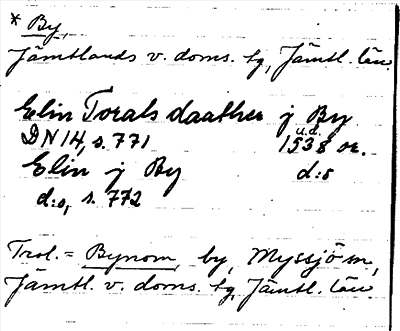 * By,
Jämtlands v. doms. sg, Jämtl. län.
Elin Torals daather j By
DN 14, s. 771 u.d. 1538 or.
Elin j By d:s
d:o, s. 772
Trol. = Bynom, by, Myssjö sn,
Jämtl. v. doms. sg, Jämtl. län.